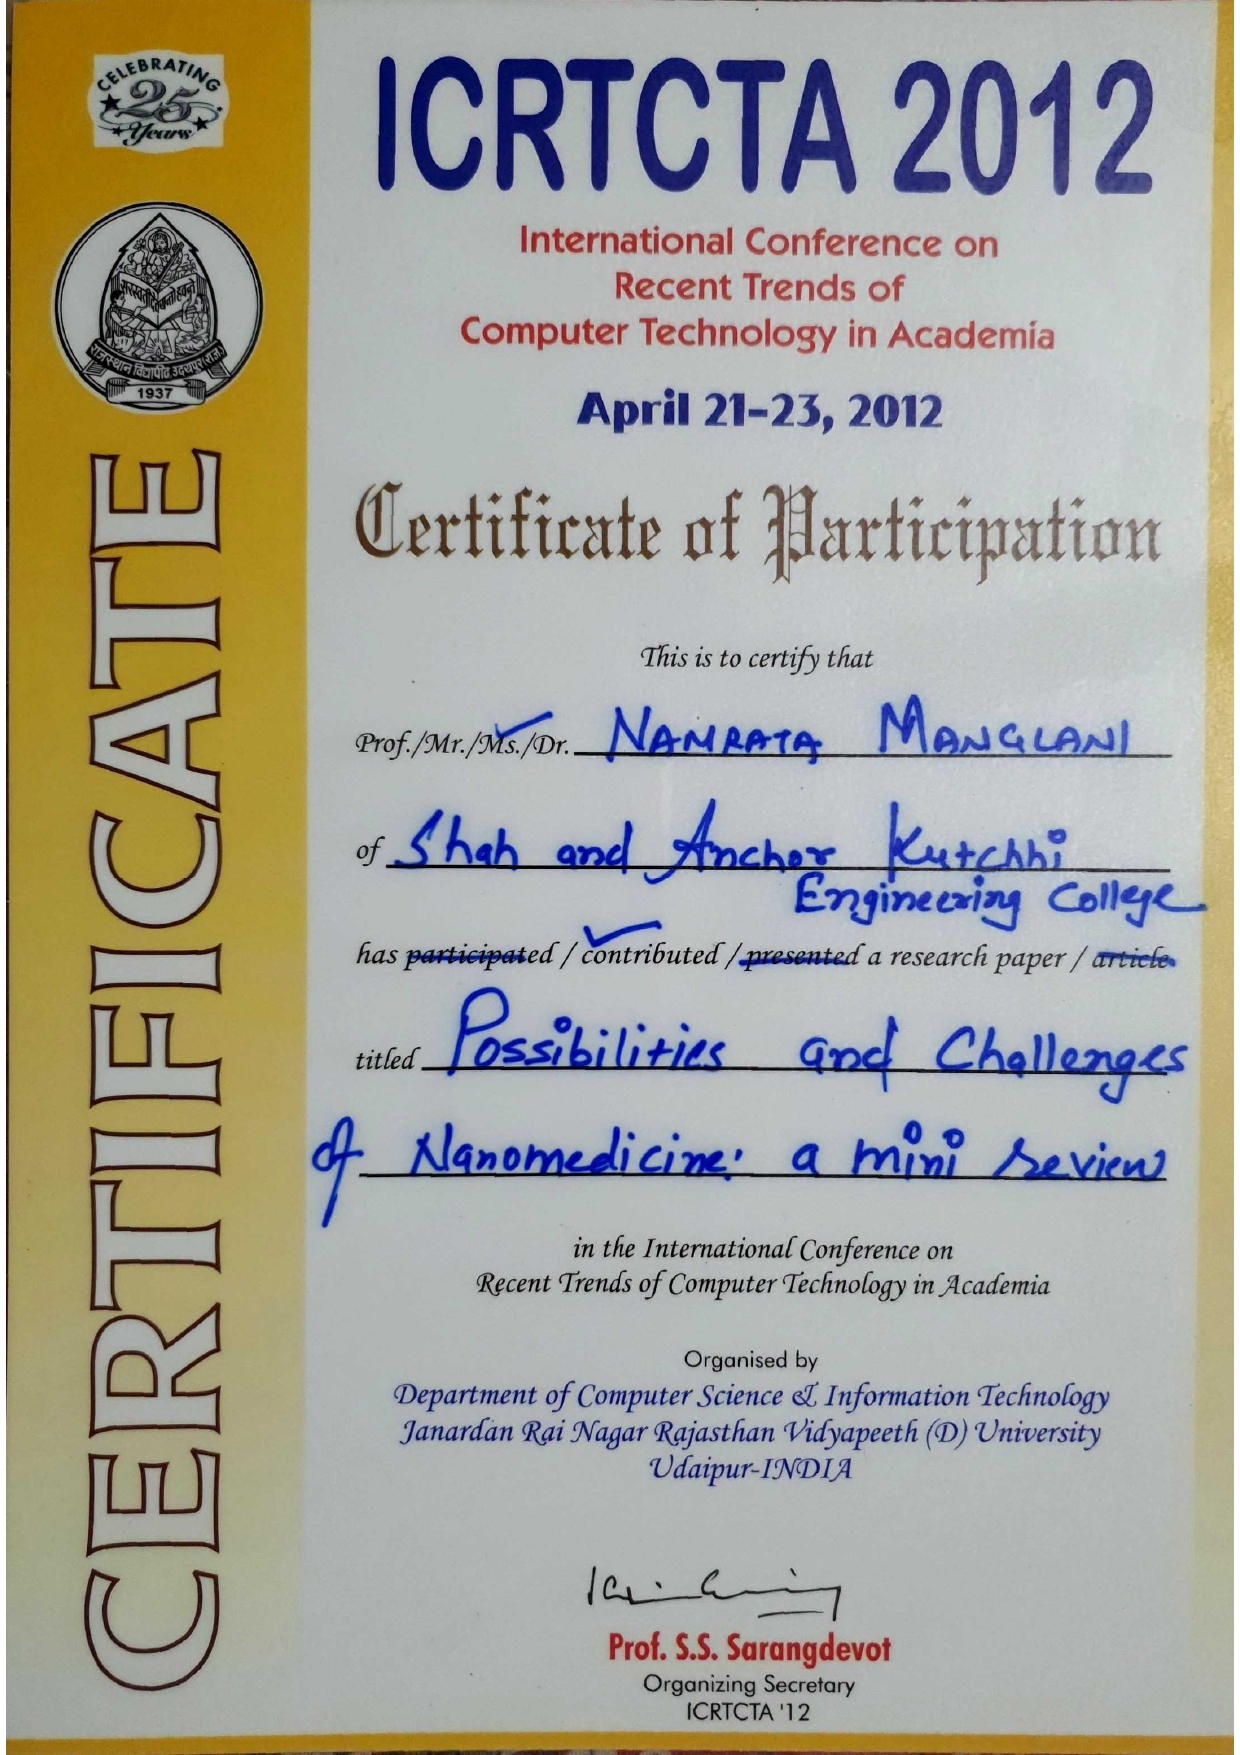 CELEBRATING
25
Years
राजस्थान विद्यापीठ उदयपुर (राज.)
1937
CERTIFICATE
ICRTCTA 2012
International Conference on
Recent Trends of
Computer Technology in Academia
April 21-23, 2012
Certificate of Participation
This is to certify that
Prof./Mr./Ms./Dr. NAMRATA MANGLANI
of Shah and Anchor Kutchhi
Engineering College
has participated / contributed / presented a research paper / article
titled Possibilities and Challenges
of Nanomedicine: a mini review
in the International Conference on
Recent Trends of Computer Technology in Academia
Organised by
Department of Computer Science & Information Technology
Janardan Rai Nagar Rajasthan Vidyapeeth (D) University
Udaipur-INDIA
Prof. S.S. Sarangdevot
Organizing Secretary
ICRTCTA '12